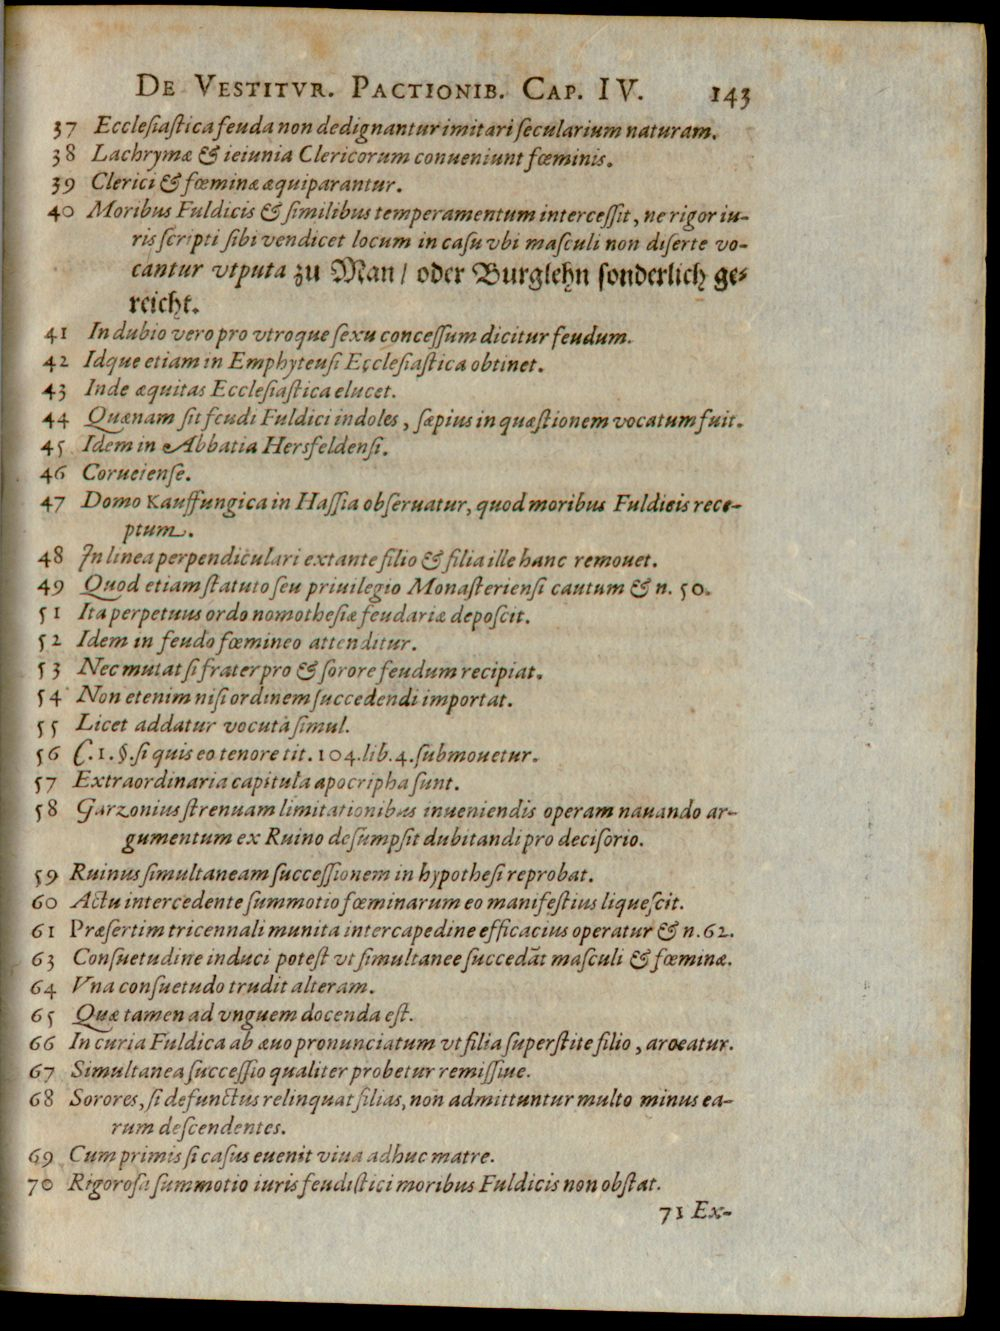 De Vestitvr. Pactionib. Cap. IV. 143
37 Ecclesiastica feuda non dedignantur imitari secularium naturam.
38 Lachrymæ & ieiunia Clericorum conueniunt fœminis.
39 Clerici & fœminæ æquiparantur.
40 Moribus Fuldicis & similibus temperamentum intercessit, ne rigor iu-
ris scripti sibi vendicet locum in casu vbi masculi non diserte vo-
cantur vtputa zu Man/ oder Burglehn sonderlich ge-
reicht.
41 In dubio vero pro vtroque sexu concessum dicitur feudum.
42 Idque etiam in Emphyteusi Ecclesiastica obtinet.
43 Inde æquitas Ecclesiastica elucet.
44 Quænam sit feudi Fuldici indoles, sæpius in quæstionem vocatum fuit.
45 Idem in Abbatia Hersfeldensi.
46 Corueiense.
47 Domo Kauffungica in Hassia obseruatur, quod moribus Fuldicis rece-
ptum.
48 In linea perpendiculari extante filio & filia ille hanc remouet.
49 Quod etiam statuto seu priuilegio Monasteriensi cautum & n. 50.
51 Ita perpetuus ordo nomothesiæ feudariæ deposcit.
52 Idem in feudo fœmineo attenditur.
53 Nec mutat si frater pro & sorore feudum recipiat.
54 Non etenim nisi ordinem succedendi importat.
55 Licet addatur vocutà simul.
56 C. 1. §. si quis eo tenore tit. 104. lib. 4. submouetur.
57 Extraordinaria capitula apocripha sunt.
58 Garzonius strenuam limitationibus inueniendis operam nauando ar-
gumentum ex Ruino desumpsit dubitandi pro decisorio.
59 Ruinus simultaneam successionem in hypothesi reprobat.
60 Actu intercedente summotio fœminarum eo manifestius liquescit.
61 Præsertim tricennali munita intercapedine efficacius operatur & n. 62.
63 Consuetudine induci potest vt simultanee succedãt masculi & fœminæ.
64 Vna consuetudo trudit alteram.
65 Quæ tamen ad vnguem docenda est.
66 In curia Fuldica ab æuo pronunciatum vt filia superstite filio, arceatur.
67 Simultanea successio qualiter probetur remissiue.
68 Sorores, si defunctus relinquat filias, non admittuntur multo minus ea-
rum descendentes.
69 Cum primis si casus euenit viua adhuc matre.
70 Rigorosa summotio iuris feudistici moribus Fuldicis non obstat.
71 Ex-